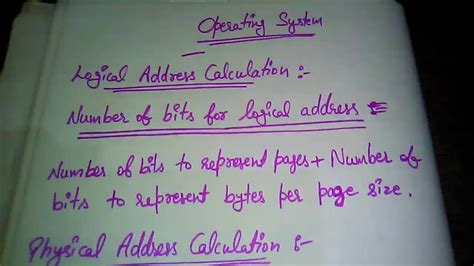 Operating System
Logical Address Calculation :-
Number of bits for logical address =
Number of bits to represent pages + Number of
bits to represent bytes per page size.
Physical Address Calculation :-